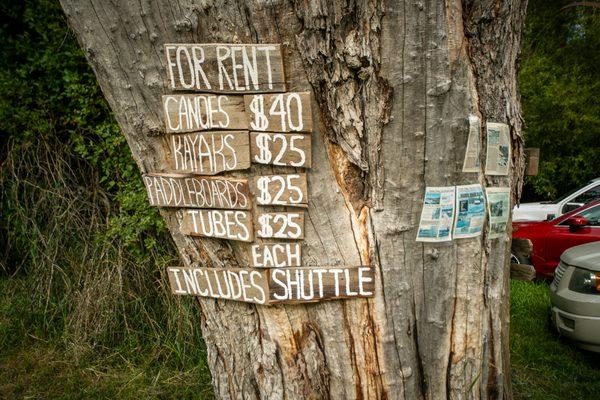 FOR RENT
CANOES $40
KAYAKS $25
PADDLEBOARDS $25
TUBES $25
EACH
INCLUDES SHUTTLE